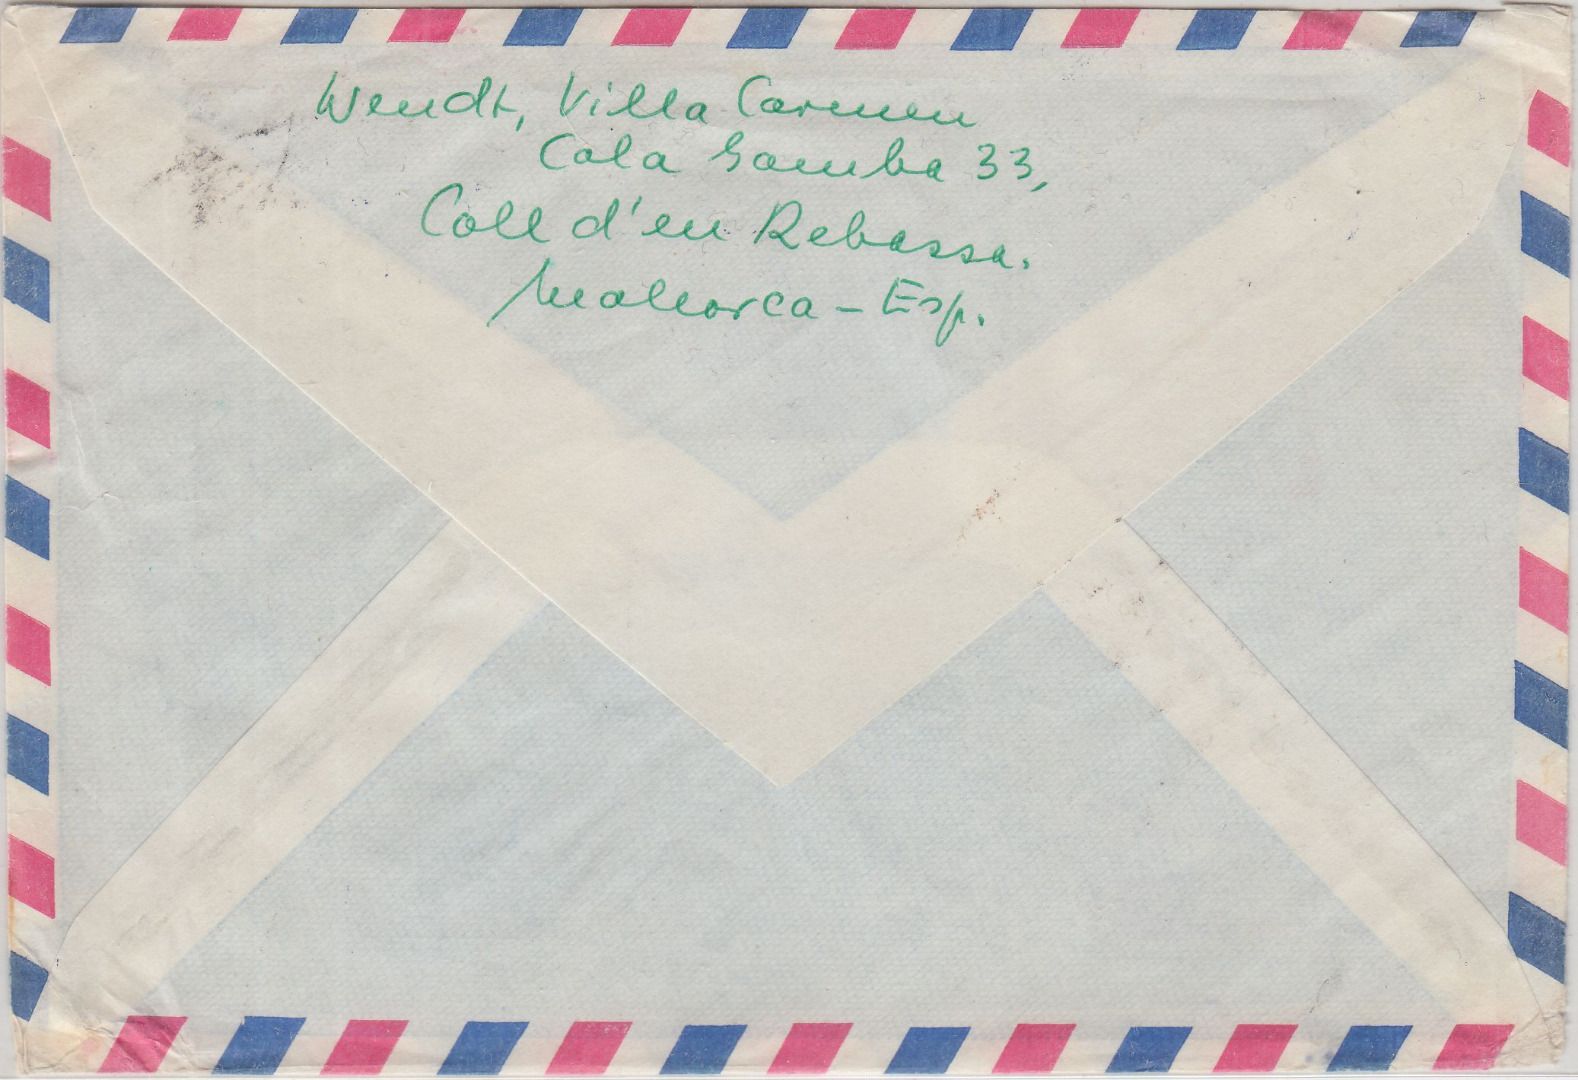 Wendt, Villa Carmen
Cala Gamba 33,
Coll d'en Rebassa.
Mallorca - Esp.